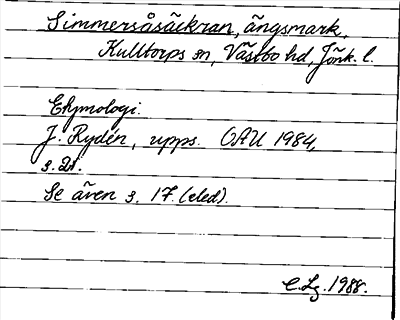 Simmersåsäckran, ängsmark,
Kulltorps sn, Västbo hd, Jönk. l.
Etymologi.
J. Rydén, upps. OAU 1984,
s. 21.
Se även s. 17. (eled).
C.Lg. 1988.